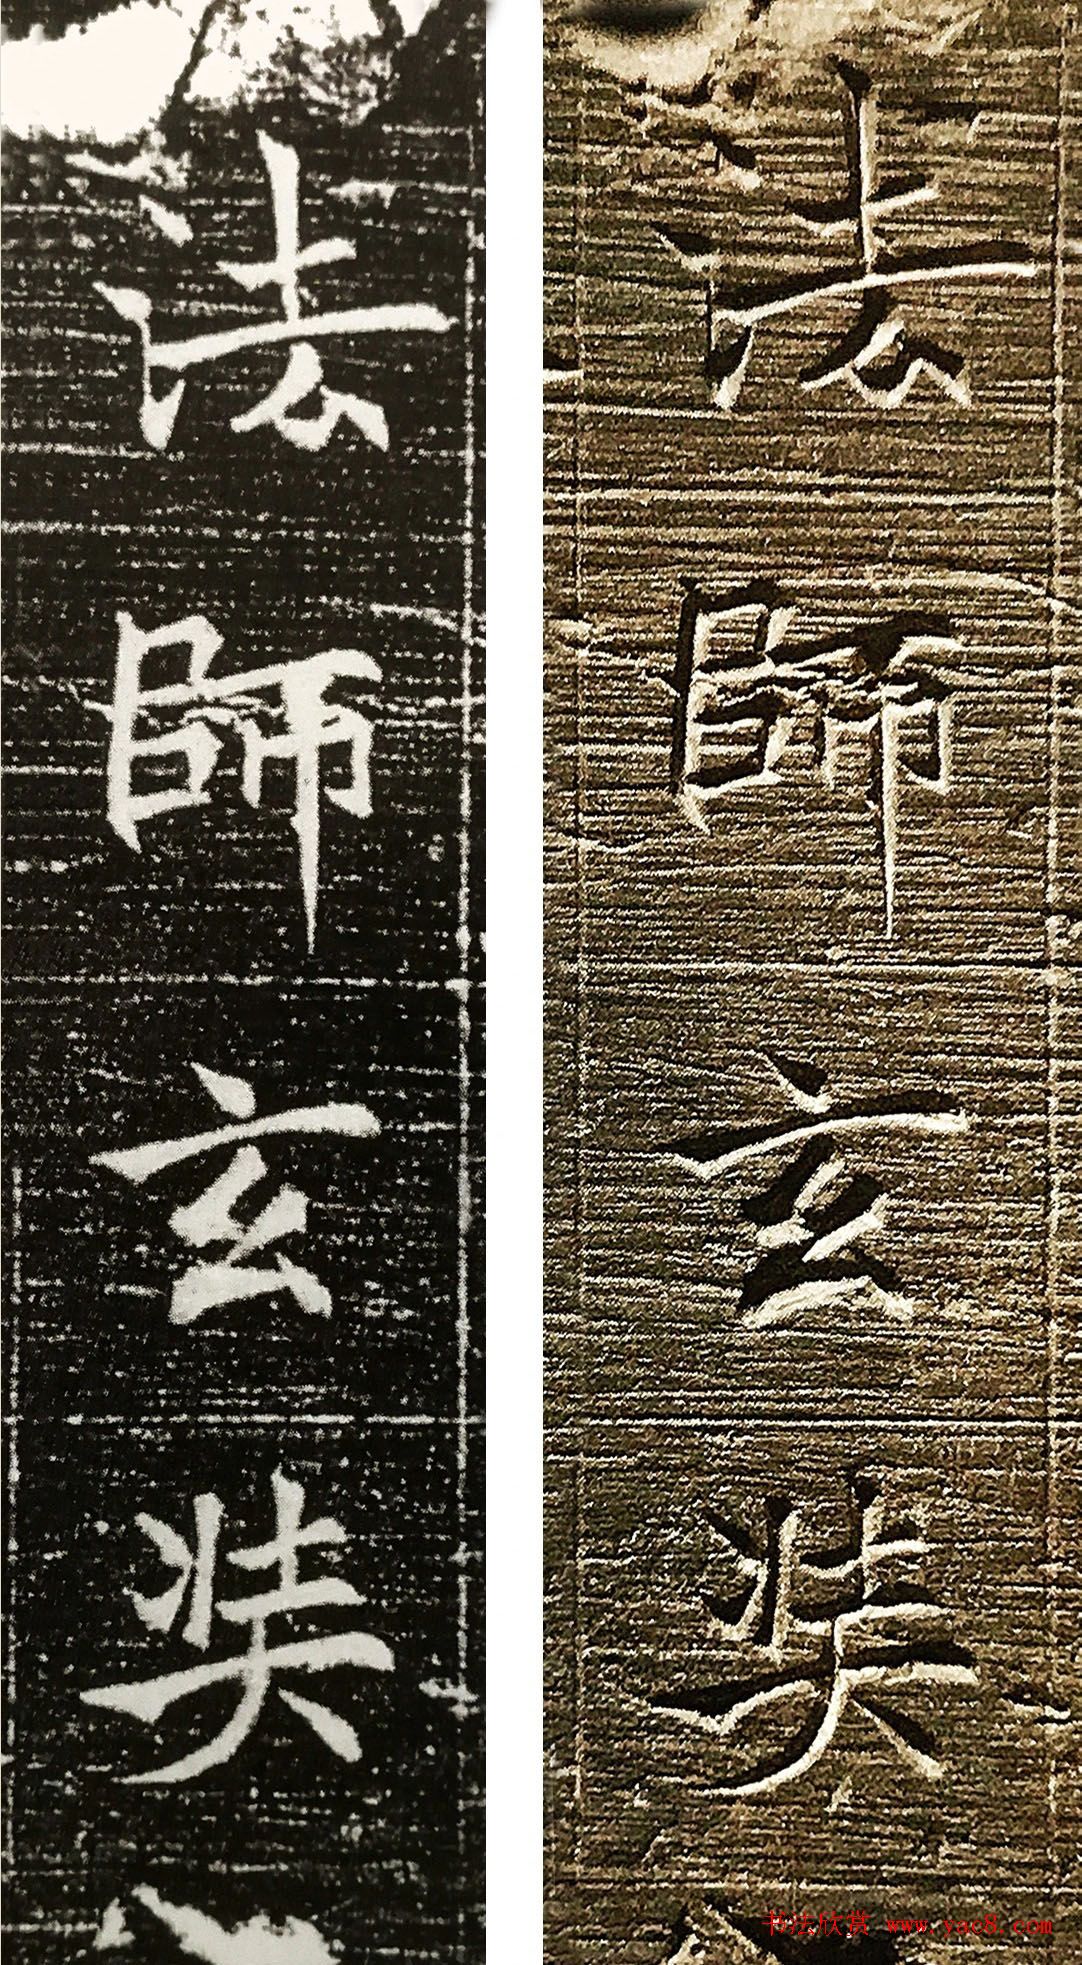 法師玄奘
法師玄奘
书法欣赏 www.yac8.com